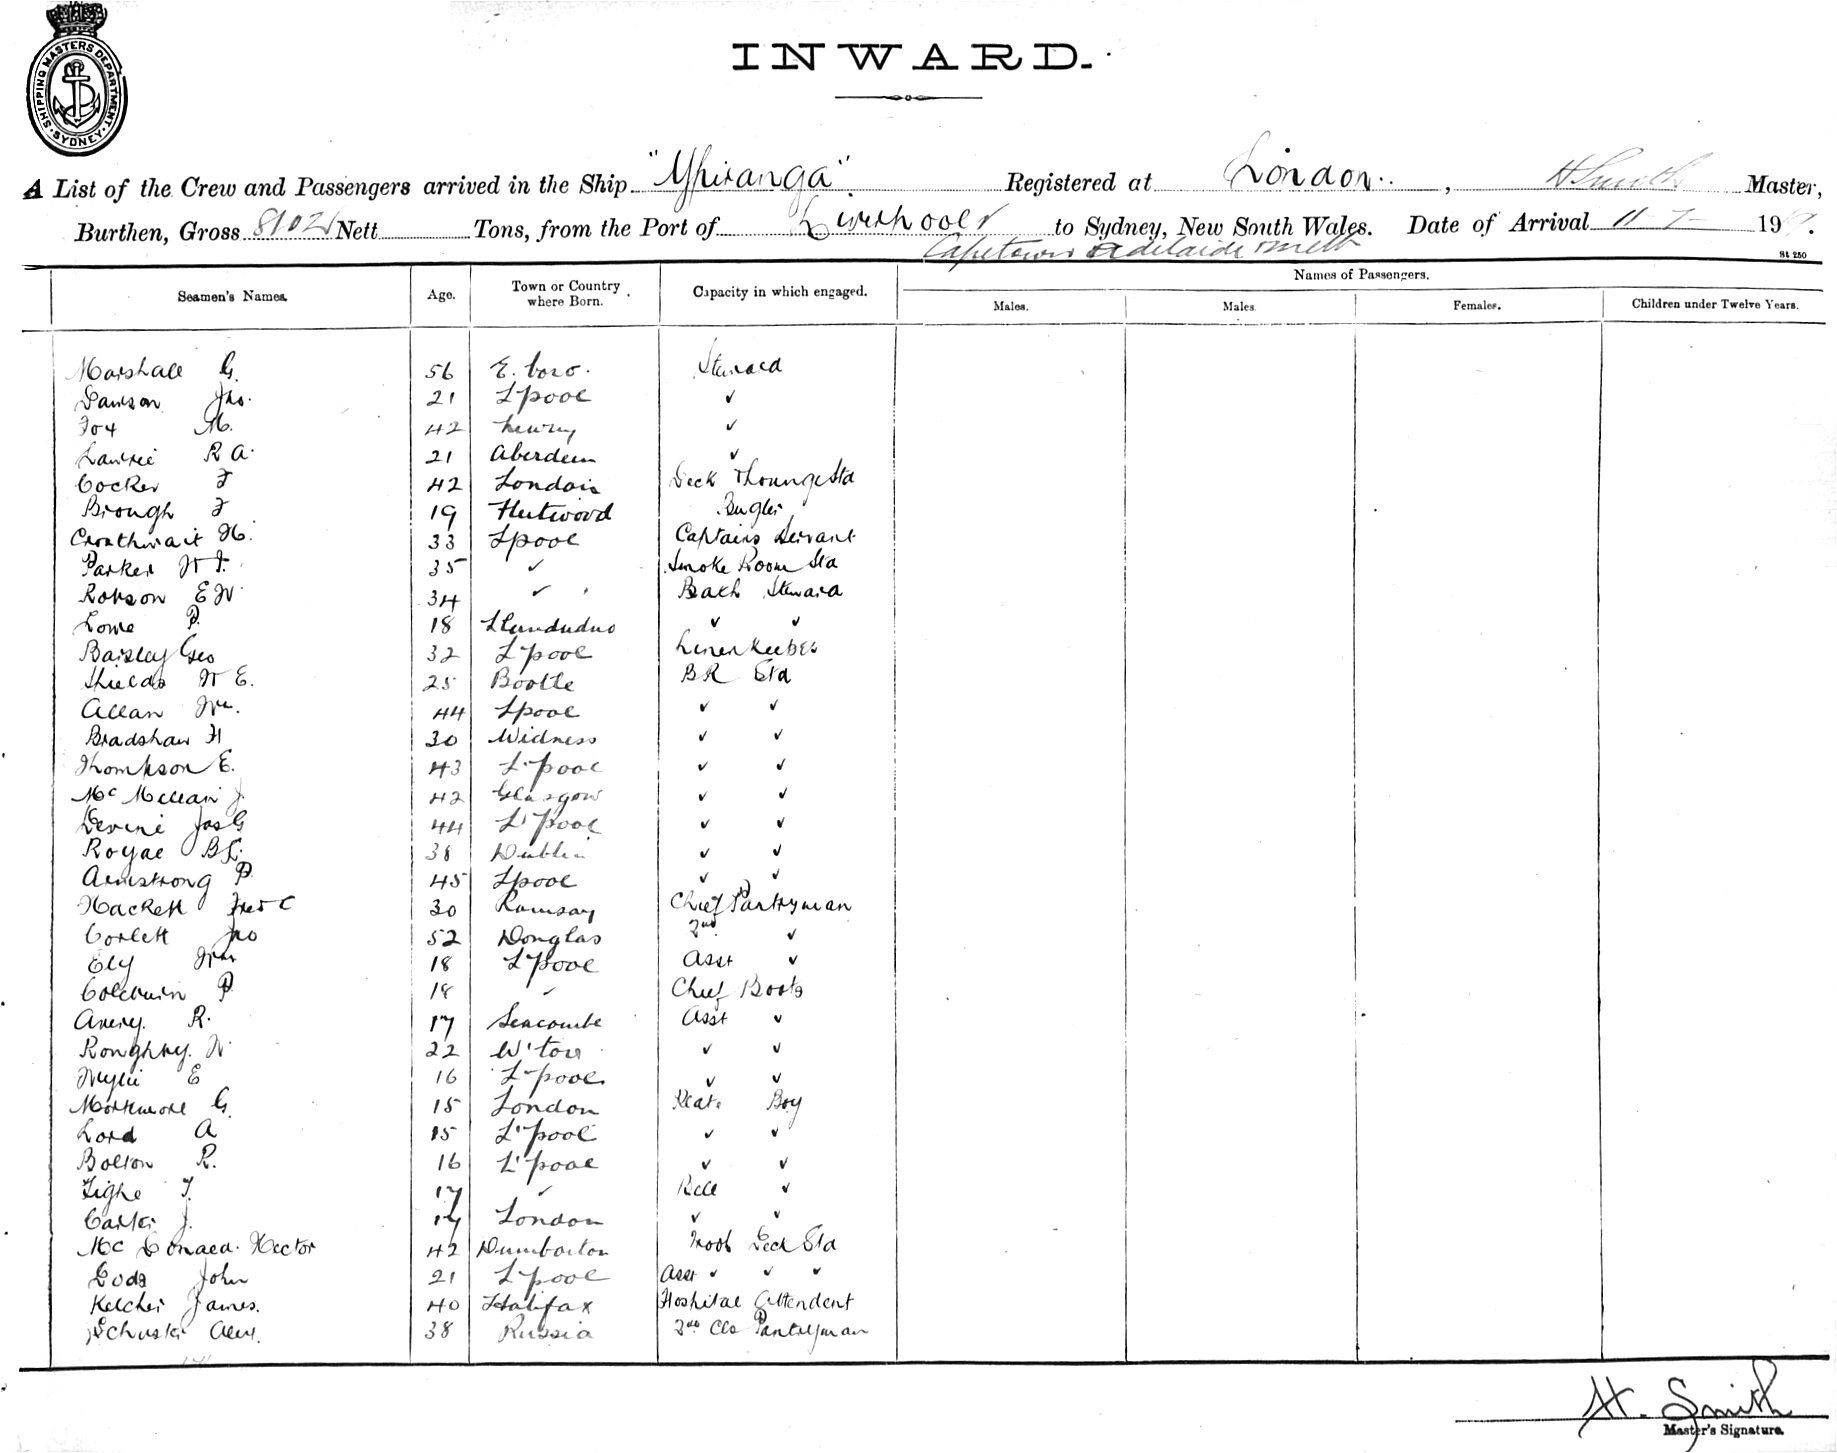 SHIPPING MASTERS DEPARTMENT · SYDNEY ·
INWARD.
A List of the Crew and Passengers arrived in the Ship "Ypiranga" Registered at London , H Smith Master,
Burthen, Gross 8102 Nett Tons, from the Port of Liverpool to Sydney, New South Wales. Date of Arrival 11-7- 19
Capetown Adelaide Melb
St 250
Seamen's Names. Age. Town or Country where Born. Capacity in which engaged. Names of Passengers.
Males. Males. Females. Children under Twelve Years.
Marshall G. 56 E. boro. Steward
Dawson Jno. 21 L'pool ✓
Fox M. 42 Newry ✓
Lawrie R A. 21 Aberdeen ✓
Cocker F 42 London Deck & Lounge Std
Brough F 19 Fleetwood Bugler
Crosthwait H. 33 Lpool Captains Servant
Parker W F. 35 ✓ Smoke Room Std
Robson E W. 34 ✓ Bath Steward
Lowe P. 18 Llandudno ✓ ✓
Baisley Geo 32 L'pool Linen Keeper
Shields W E. 25 Bootle B R Std
Allan Wm. 44 Lpool ✓ ✓
Bradshaw H 30 Widness ✓ ✓
Thompson E. 43 L'pool ✓ ✓
Mc Mcllan J. 42 Glasgow ✓ ✓
Devine Jas G 44 L'pool ✓ ✓
Royal B 38 Dublin ✓ ✓
Armstrong P. 45 Lpool ✓ ✓
Hackett Fred C 30 Ramsay Chief Pantryman
Corlett Jno 52 Douglas 2nd ✓
Ely Wm 18 L'pool Asst ✓
Coleman P. 18 ✓ Chief Boots
Avery. R. 17 Seacombe Asst ✓
Roughley. W 22 W'ton ✓ ✓
Wylie E 16 L'pool. ✓ ✓
Mortimore G. 15 London Plate Boy
Lord A 15 L'pool ✓ ✓
Bolton R. 16 L'pool ✓ ✓
Tighe T. 17 ✓ Bell ✓
Carter J. 17 London ✓ ✓
Mc Donald. Hector 42 Dumbarton Troop Deck Std
Dodd John 21 L'pool Asst ✓ ✓ ✓
Kelcher James. 40 Halifax Hospital Attendent
Schuster Alex. 38 Russia 2nd Cls Pantryman
H. Smith
Master's Signature.